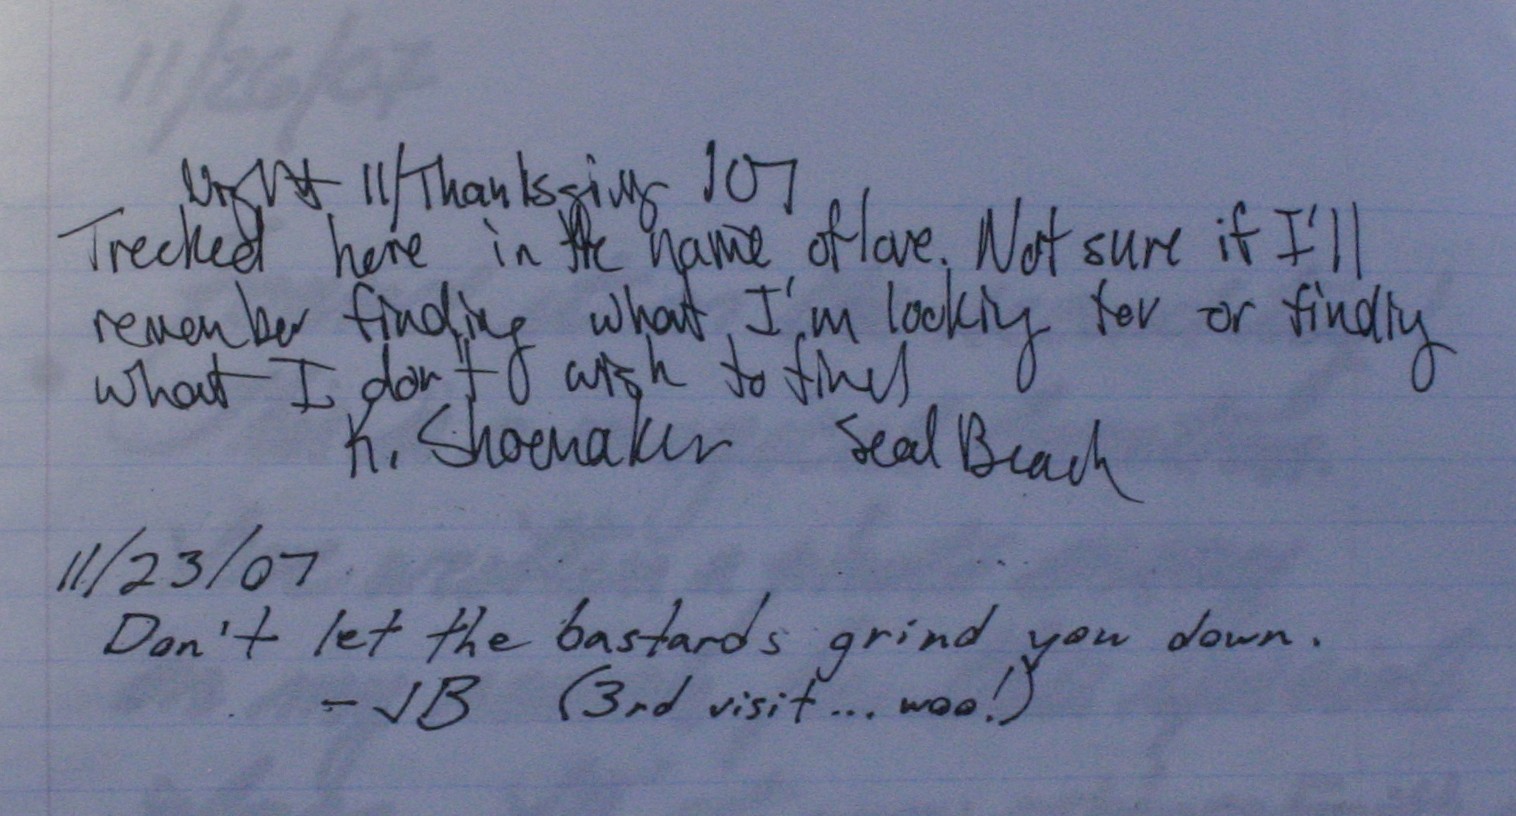 11/26/07
Night 11/Thanksgiving 107
Trecked here in the name of love. Not sure if I'll
remember finding what I'm looking for or finding
what I don't wish to find
K. Shoemaker Seal Beach
11/23/07
Don't let the bastards grind you down.
- JB (3rd visit... woo!)